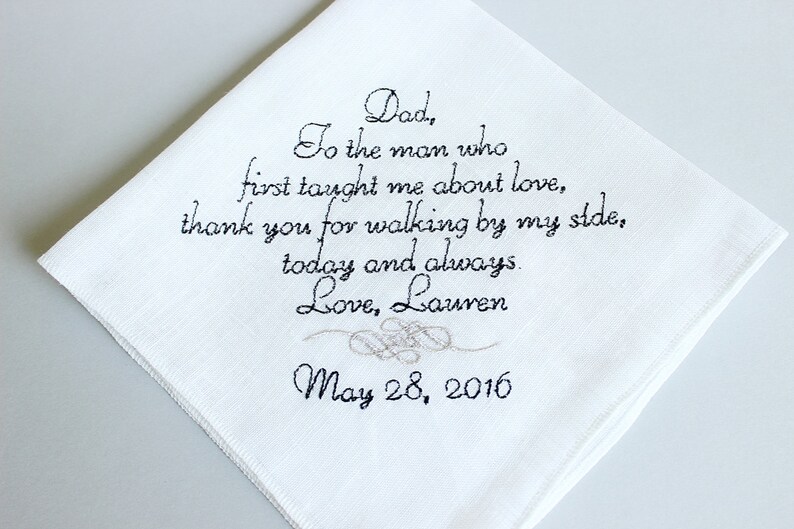 Dad,
To the man who
first taught me about love,
thank you for walking by my side,
today and always.
Love, Lauren
May 28, 2016